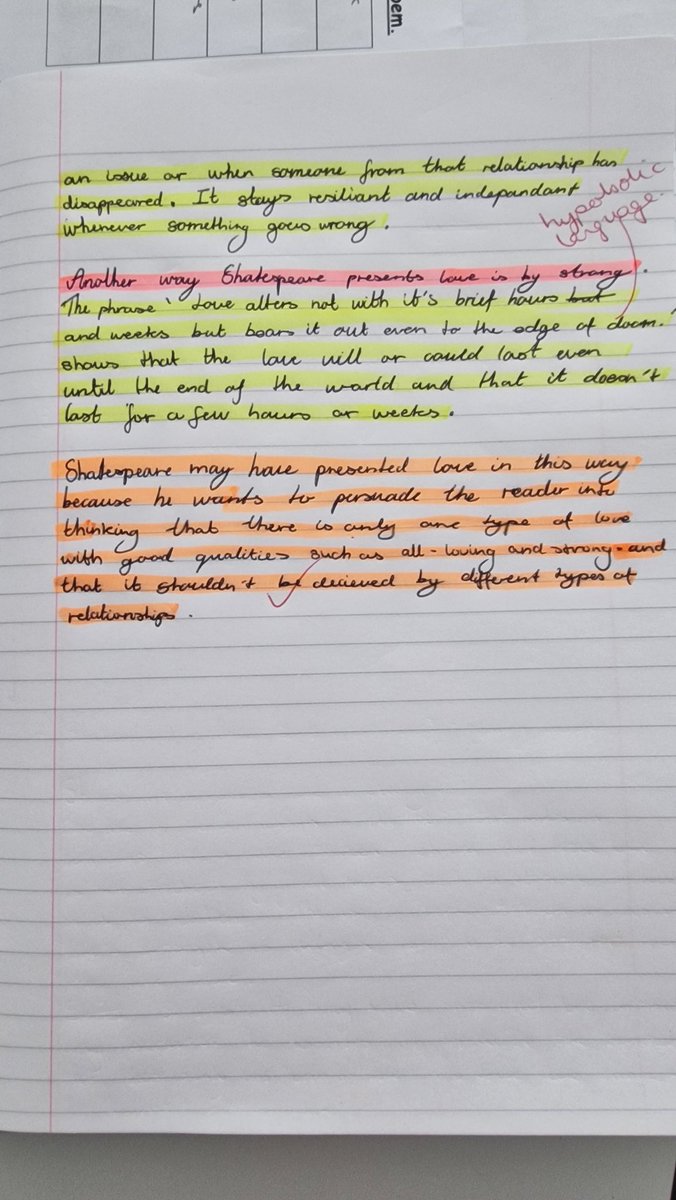 oem.
an issue or when someone from that relationship has
disappeared. It stays resiliant and independant
whenever something goes wrong.
hyperbolic
language.
Another way Shakespeare presents love is by strong.
The phrase 'Love alters not with it's brief hours but
and weeks but bears it out even to the edge of doom.'
shows that the love will or could last even
until the end of the world and that it doesn't
last for a few hours or weeks.
Shakespeare may have presented love in this way
because he wants to persuade the reader into
thinking that there is only one type of love
with good qualities such as all-loving and strong and
that it shouldn't be decieved by different types of
relationships.